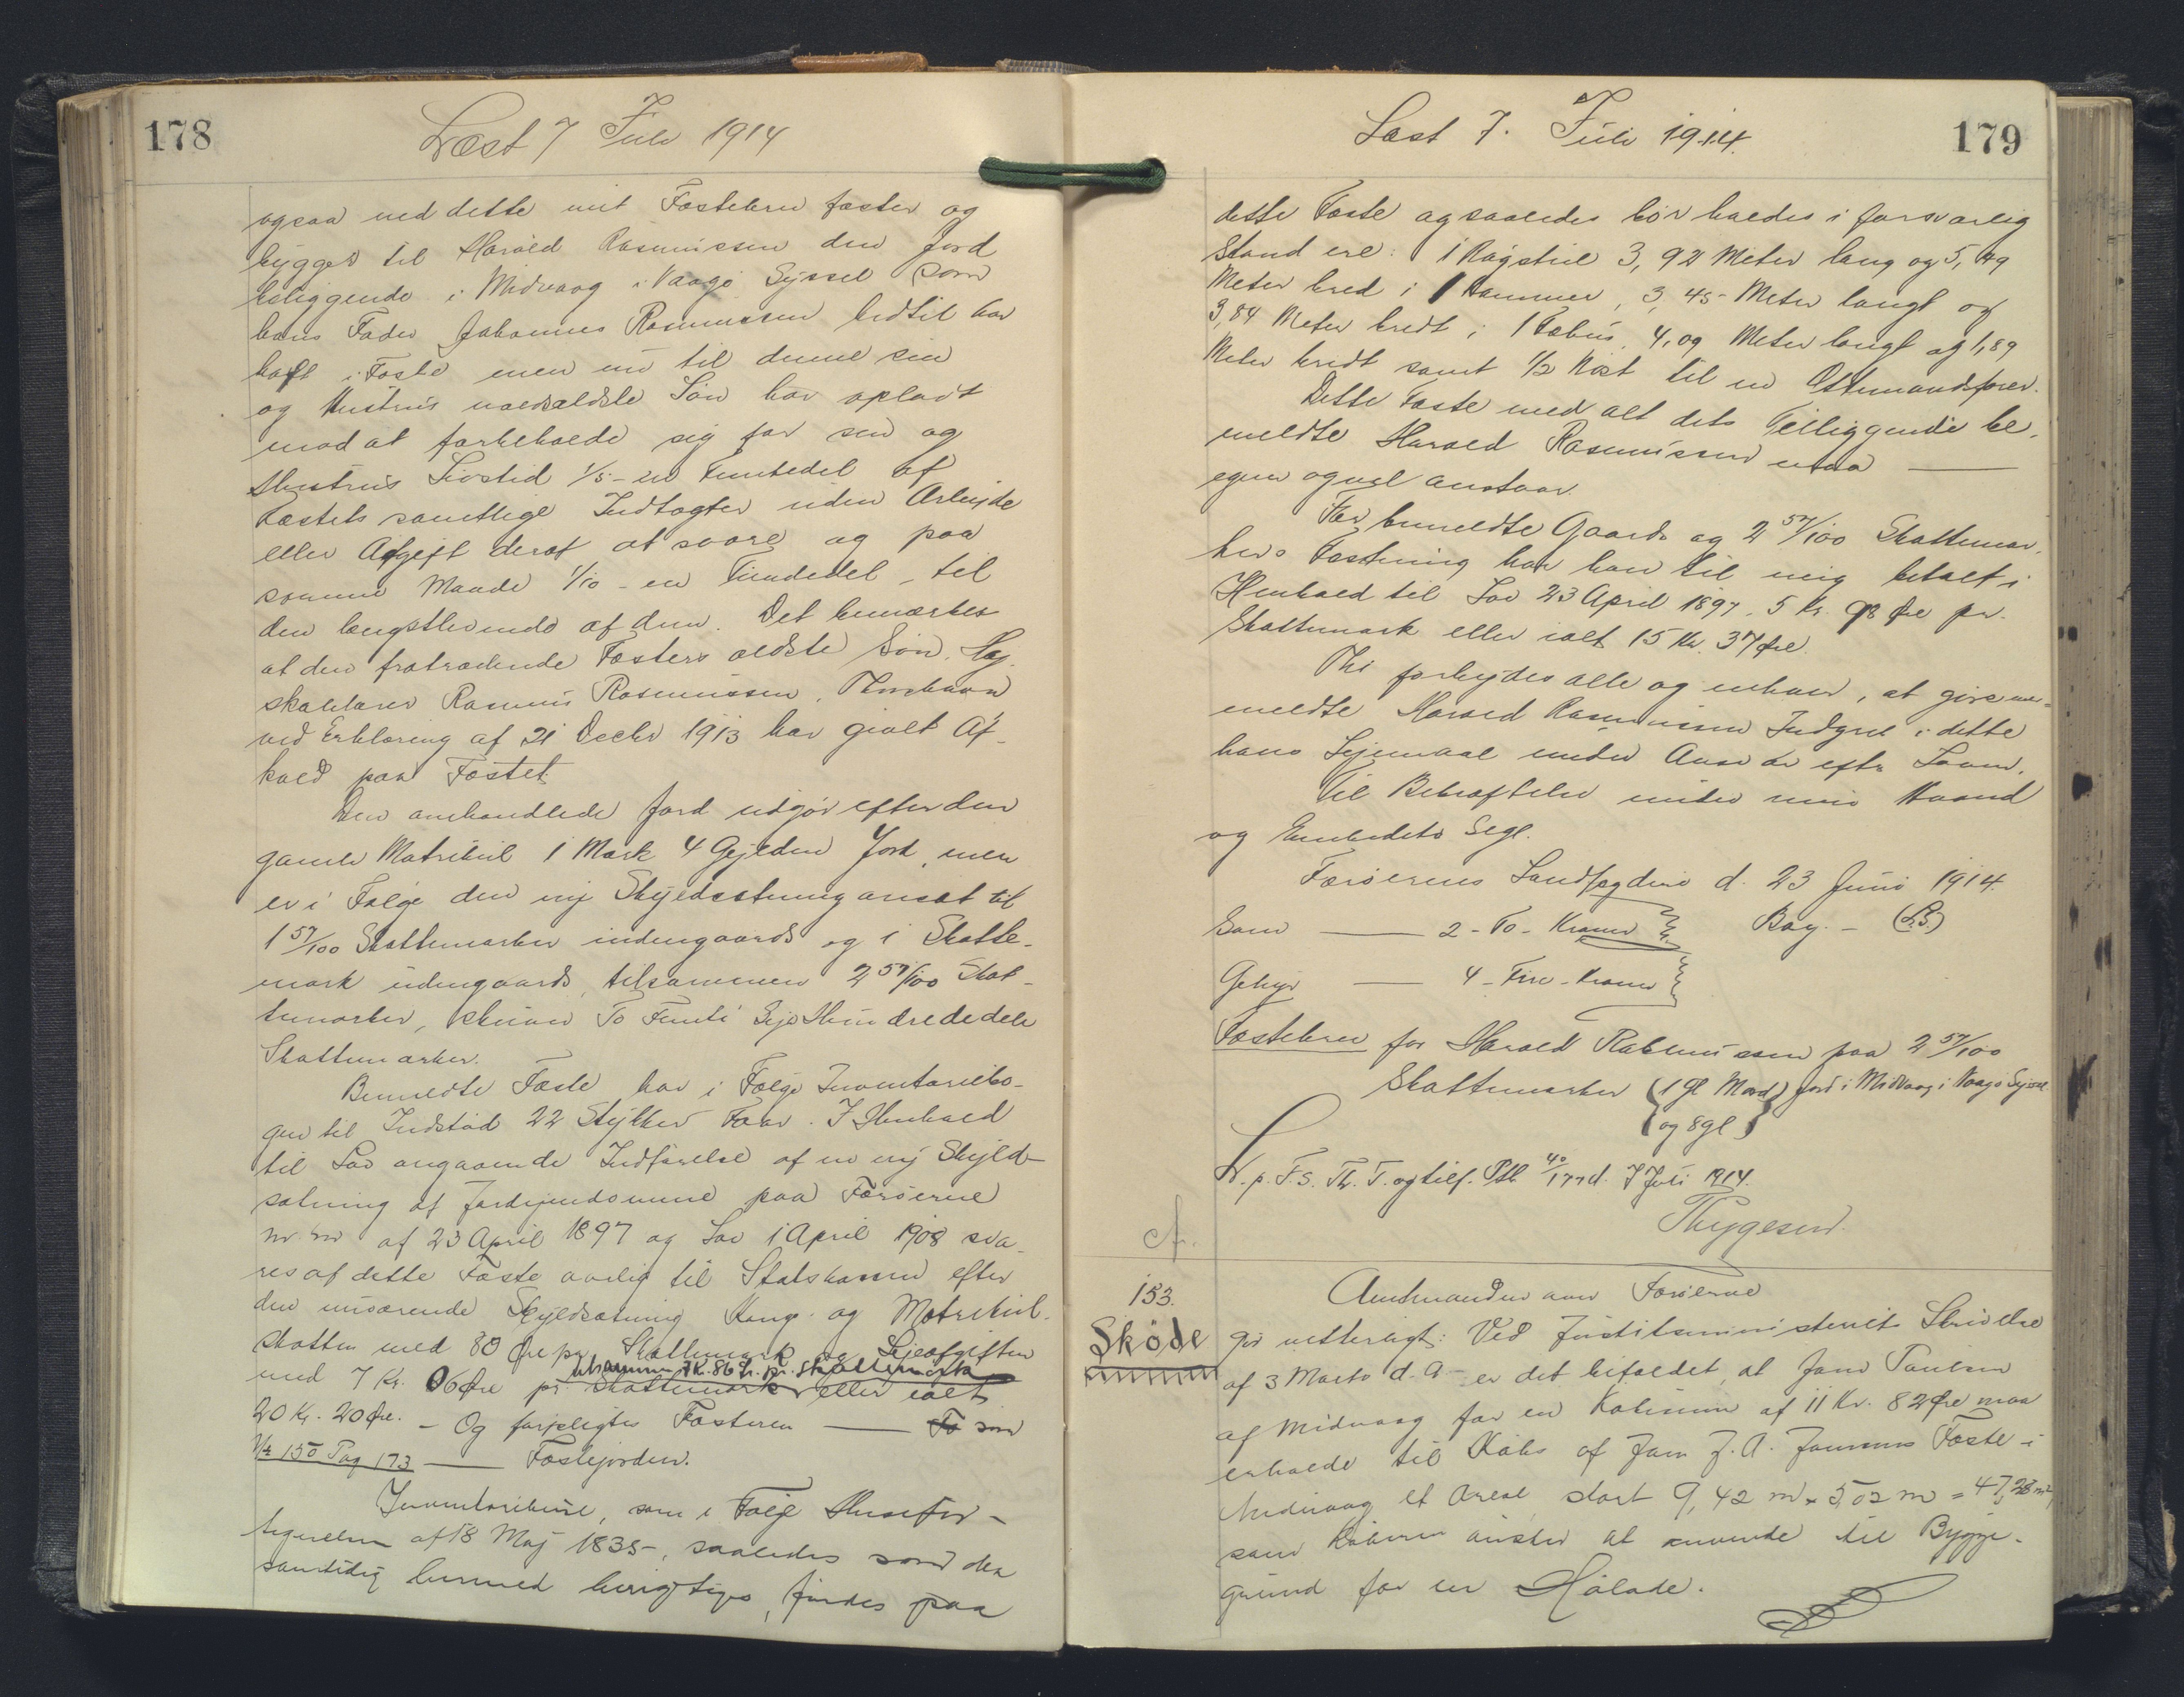 178
Læst 7 Juli 1914
ogsaa ved dette mit Fæstebrev fæster og
bygger til Harald Rasmussen den Jord
beliggende i Midvaag i Vaagø Syssel som
hans Fader Johannes Rasmussen hidtil har
haft i Fæste men nu til denne sin
og Hustrus næstældste Søn har opladt
mod at forbeholde sig for sin og
Hustrus Livstid 1/5 - en Femtedel af
Fæstets samtlige Indtægter uden Arbejde
eller Afgift deraf at svare og paa
samme Maade 1/10 - en Tiendedel - til
den længstlevende af dem. Det bemærkes
at den fratrædende Fæsters ældste Søn, Høj-
skolelærer Rasmus Rasmussen, Thorshavn
ved Erklæring af 21 Decbr 1913 har givet Af-
kald paa Fæstet.
Den omhandlede Jord udgør efter den
gamle Matrikul 1 Mark 4 Gylden Jord, men
er i Følge den ny Skyldsætning ansat til
1 57/100 Skattemarker indengaards og 1 Skatte-
mark udengaards, tilsammen 2 57/100 Skat-
temarker, skriver To Femti Syv Hundrededele
Skattemarker.
Bemeldte Fæste har i Følge Inventariebo-
gen til Indstød 22 Stykker Faar. I Henhold
til Lov angaaende Indførelse af en ny Skyld-
sætning af Jordejendomme paa Færøerne
m. m. af 23 April 1897 og Lov 1 April 1908 sva-
res af dette Fæste aarlig til Statskassen efter
den nuværende Skyldsætning Konge- og Matrikul-
skatten med 80 Øre pr. Skattemark og Lejeafgiften
tilsammen 7 Kr. 86 Ør. pr. Skattemark
med 7 Kr. 06 Øre pr. Skattemark eller ialt
20 Kr. 20 Øre. - Og forpligtes Fæsteren — To som
Nr 150 Pag 173 — Fæstejorden.
Inventariehuse, som i Følge Husefor-
tegnelsen af 18 Maj 1835, saaledes som den
samtidig hermed berigtiges, findes paa
179
Læst 7. Juli 1914.
dette Fæste og saaledes bør holdes i forsvarlig
Stand ere: 1 Røgstue 3,92 Meter lang og 5,49
Meter bred; 1 Kammer, 3,45 Meter langt og
3,84 Meter bredt; 1 Fæhus, 4,09 Meter langt og 1,89
Meter bredt samt 1/2 Nøst til en Ottemandsfarer.
Dette Fæste med alt dets Tilliggende be-
meldte Harald Rasmussen maa —
egner og vel anstaar.
For bemeldte Gaards og 2 57/100 Skattemar-
kers Fæstning har han til mig betalt i
Henhold til Lov 23 April 1897, 5 Kr. 98 Øre pr.
Skattemark eller ialt 15 Kr. 37 Øre.
Thi forbydes alle og enhver, at gøre mer-
meldte Harald Rasmussen Indgreb i dette
hans Lejemaal under Ansvar efter Loven.
Til Bekræftelse under min Haand
og Embedets Segl.
Færøernes Landfogderi d. 23 Juni 1914.
Sam — 2 - To - Kroner Bay. - (L.S.)
Gebyr — 4 - Fire - Kroner
Fæstebrev for Harald Rasmussen paa 2 57/100
Skattemarker (1 gl Mark) Jord i Midvaag i Vaagø Syssel
(og 8 gl)
L. p. F. S. Th. T. og tilf. Ptb 40/177 d. 7 Juli 1914.
Thygesen.
A.
153.
Skøde
Amtmanden over Færøerne
gør vitterligt: Ved Justitsministeriets Skrivelse
af 3 Marts d. A. er det bifaldet, at Jens Poulsen
af Midvaag for en Købesum af 11 Kr. 82 Øre maa
erholde til Købs af Jens J. A. Jensens Fæste i
Midvaag et Areal stort 9,42 m × 5,02 m = 47,28 m²,
som Køberen ønsker at anvende til Bygge-
grund for en Hølade.